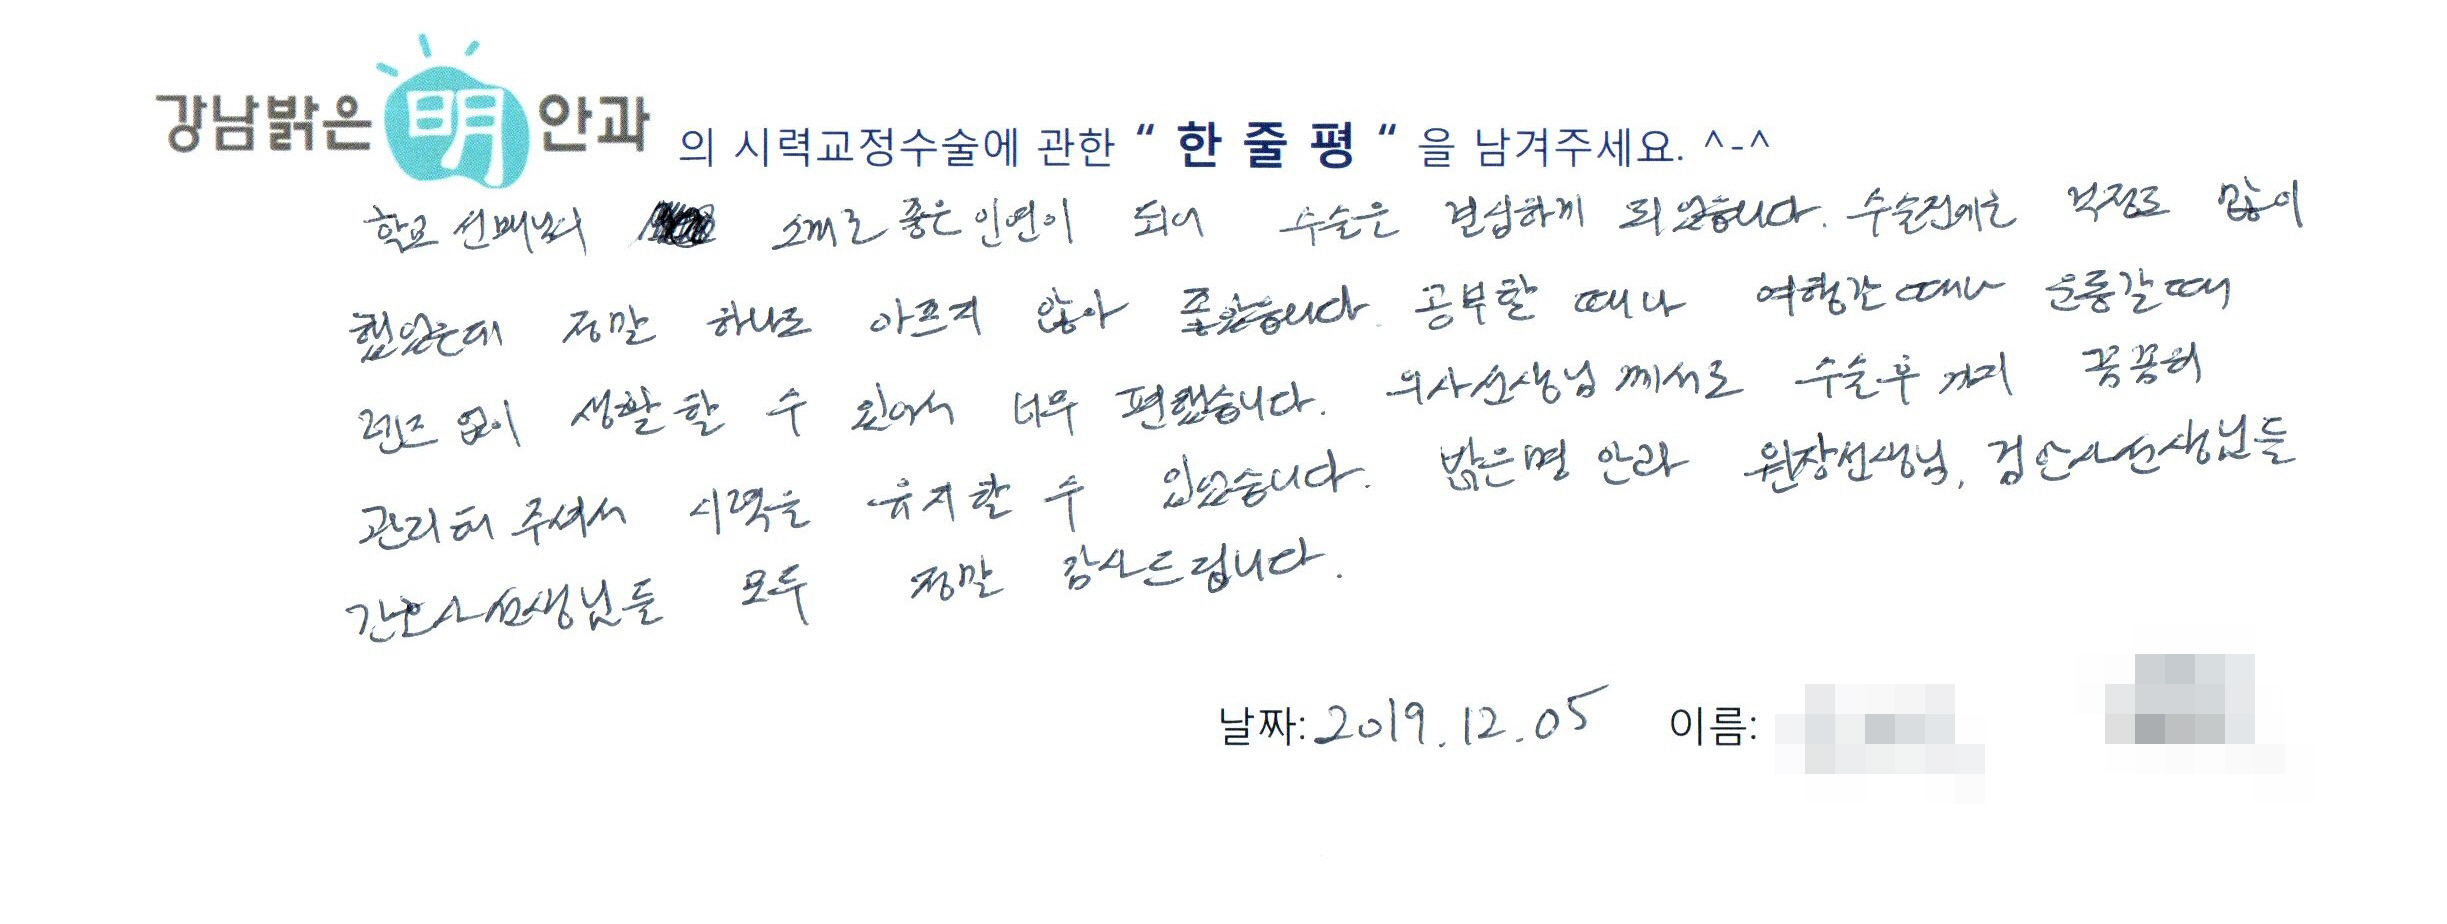 강남밝은明안과 의 시력교정수술에 관한 “ 한 줄 평 “ 을 남겨주세요. ^-^
학교 선배님의 소개로 좋은 인연이 되어 수술은 결심하게 되었습니다. 수술전에는 걱정도 많이
했었는데 정말 하나도 아프지 않아 좋았습니다. 공부할 때나 여행갈 때나 운동갈때
렌즈 없이 생활할 수 있어서 너무 편했습니다. 의사선생님께서도 수술후까지 꼼꼼히
관리해 주셔서 시력을 유지할 수 있었습니다. 밝은명 안과 원장선생님, 검안사선생님들
간호사선생님들 모두 정말 감사드립니다.
날짜: 2019.12.05 이름: